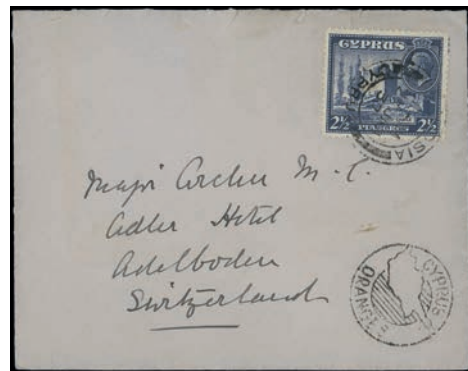 CYPRUS
2½ PIASTRES 2½
Major Archer M.C.
Adler Hotel
Adelboden
Switzerland
CYPRUS
ORANGES